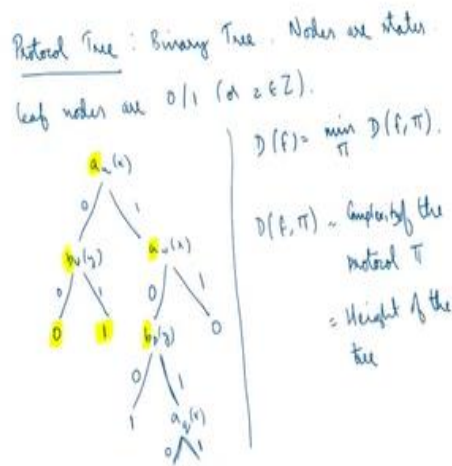 Protocol Tree : Binary Tree. Nodes are states.
Leaf nodes are 0/1 (or z ∈ Z).
a_u(x)
0 1
b_v(y) a_w(x)
0 1 0 1
0 1 b_p(y) 0
0 1
1 a_q(x)
0 1
D(f) = min_π D(f, π).
D(f, π) = Complexity of the
protocol π
= Height of the
tree